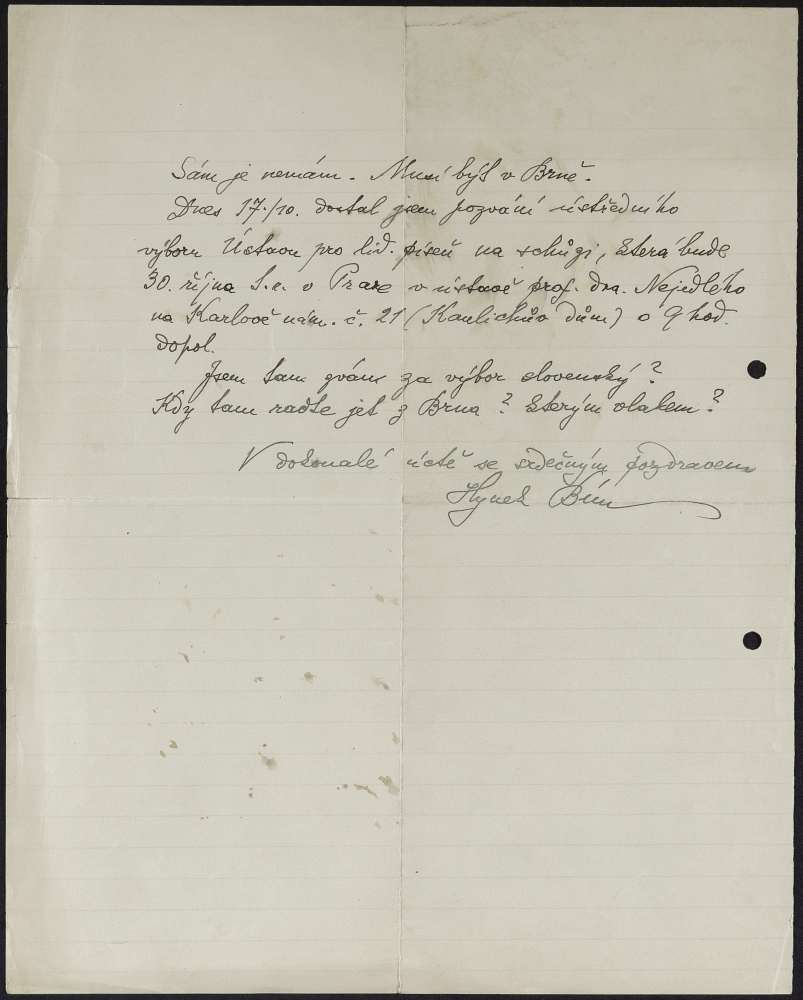 Sám je nemám. Musí být v Brně.
Dnes 17./10. dostal jsem pozvání ústředního
výboru Ústavu pro lid. píseň na schůzi, která bude
30. října t.r. v Praze v ústavě prof. dra. Nejedlého
na Karlově nám. č. 21 (Kaulichův dům) o 9 hod.
dopol.
Jsem tam zván za výbor slovenský?
Kdy tam radíte jet z Brna? Kterým vlakem?
V dokonalé úctě se srdečným pozdravem
Hynek Bím